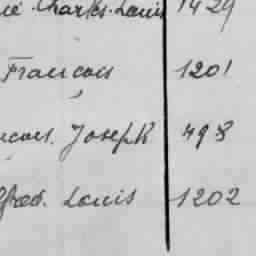 Charles. Louis 1429
Francois 1201
ncois. Joseph 498
lfred. Louis 1202